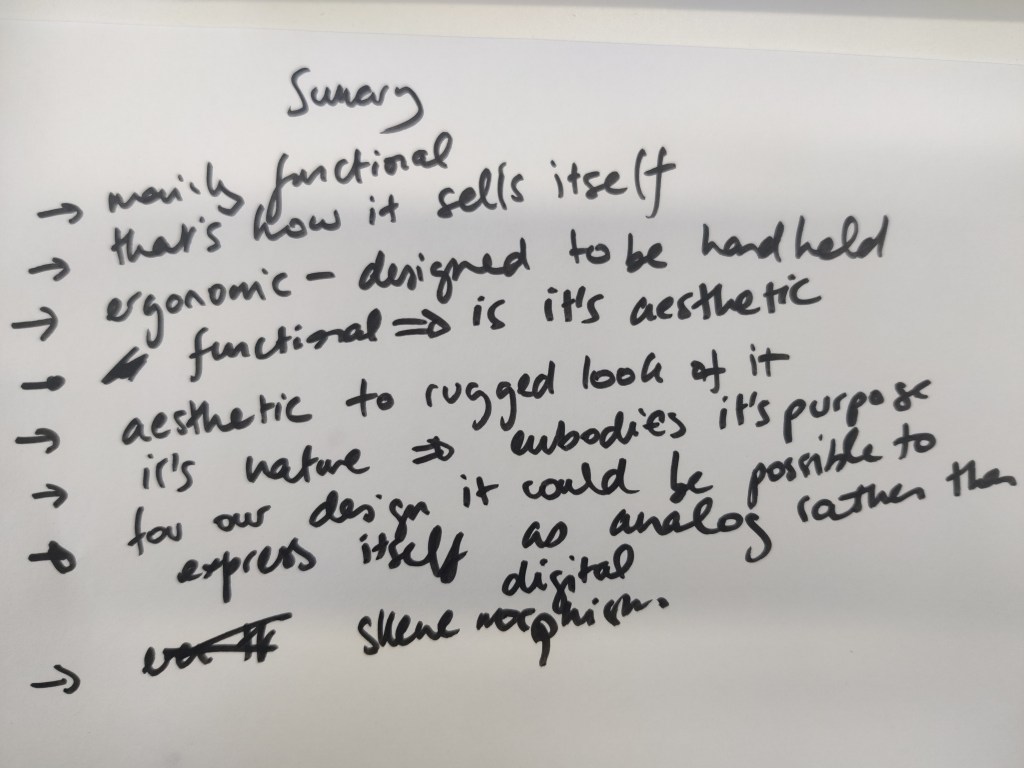 Sumary
→ mainly functional
→ that's how it sells itself
→ ergonomic – designed to be handheld
→ functional ⇒ is it's aesthetic
→ aesthetic to rugged look of it
→ it's nature ⇒ embodies it's purpose
→ for our design it could be possible to
express itself as analog rather then
digital
→ skeuemorphism.